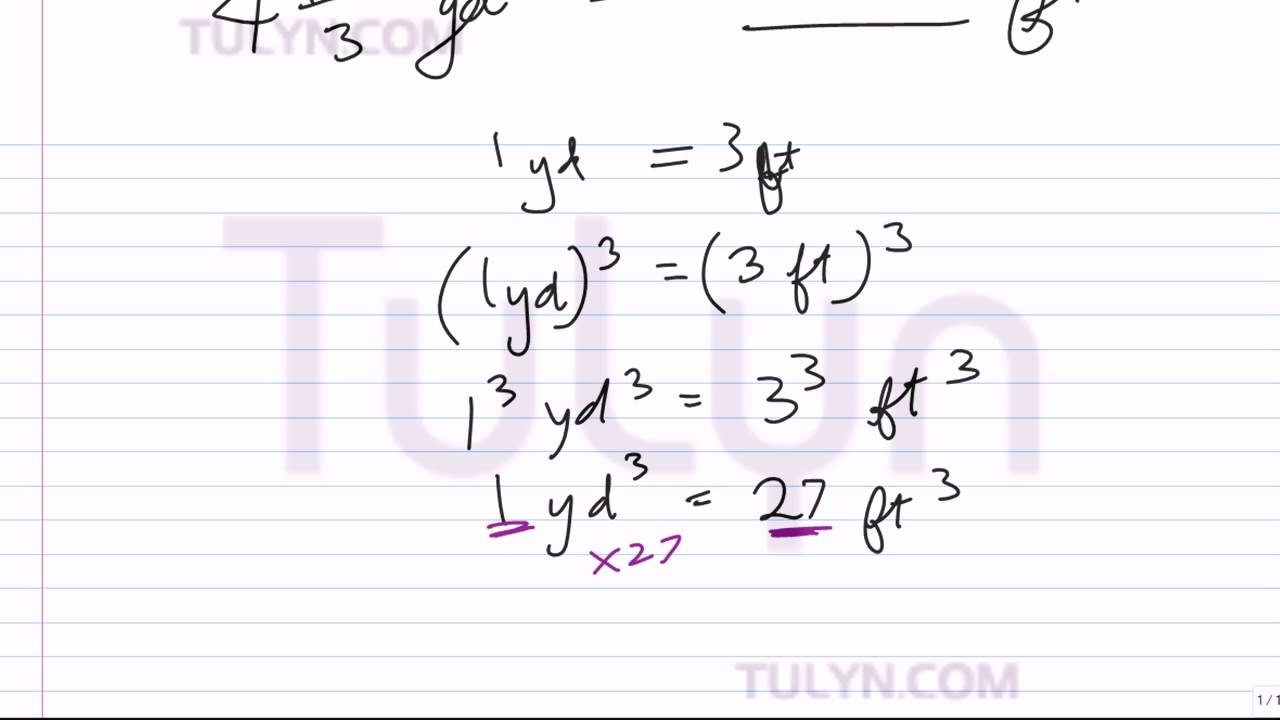 4 /3 yd = ____ ft
TULYN.COM
1 yd = 3 ft
(1yd)³ = (3 ft)³
1³ yd³ = 3³ ft³
1 yd³ = 27 ft³
×27
TULYN
TULYN.COM
1 / 1